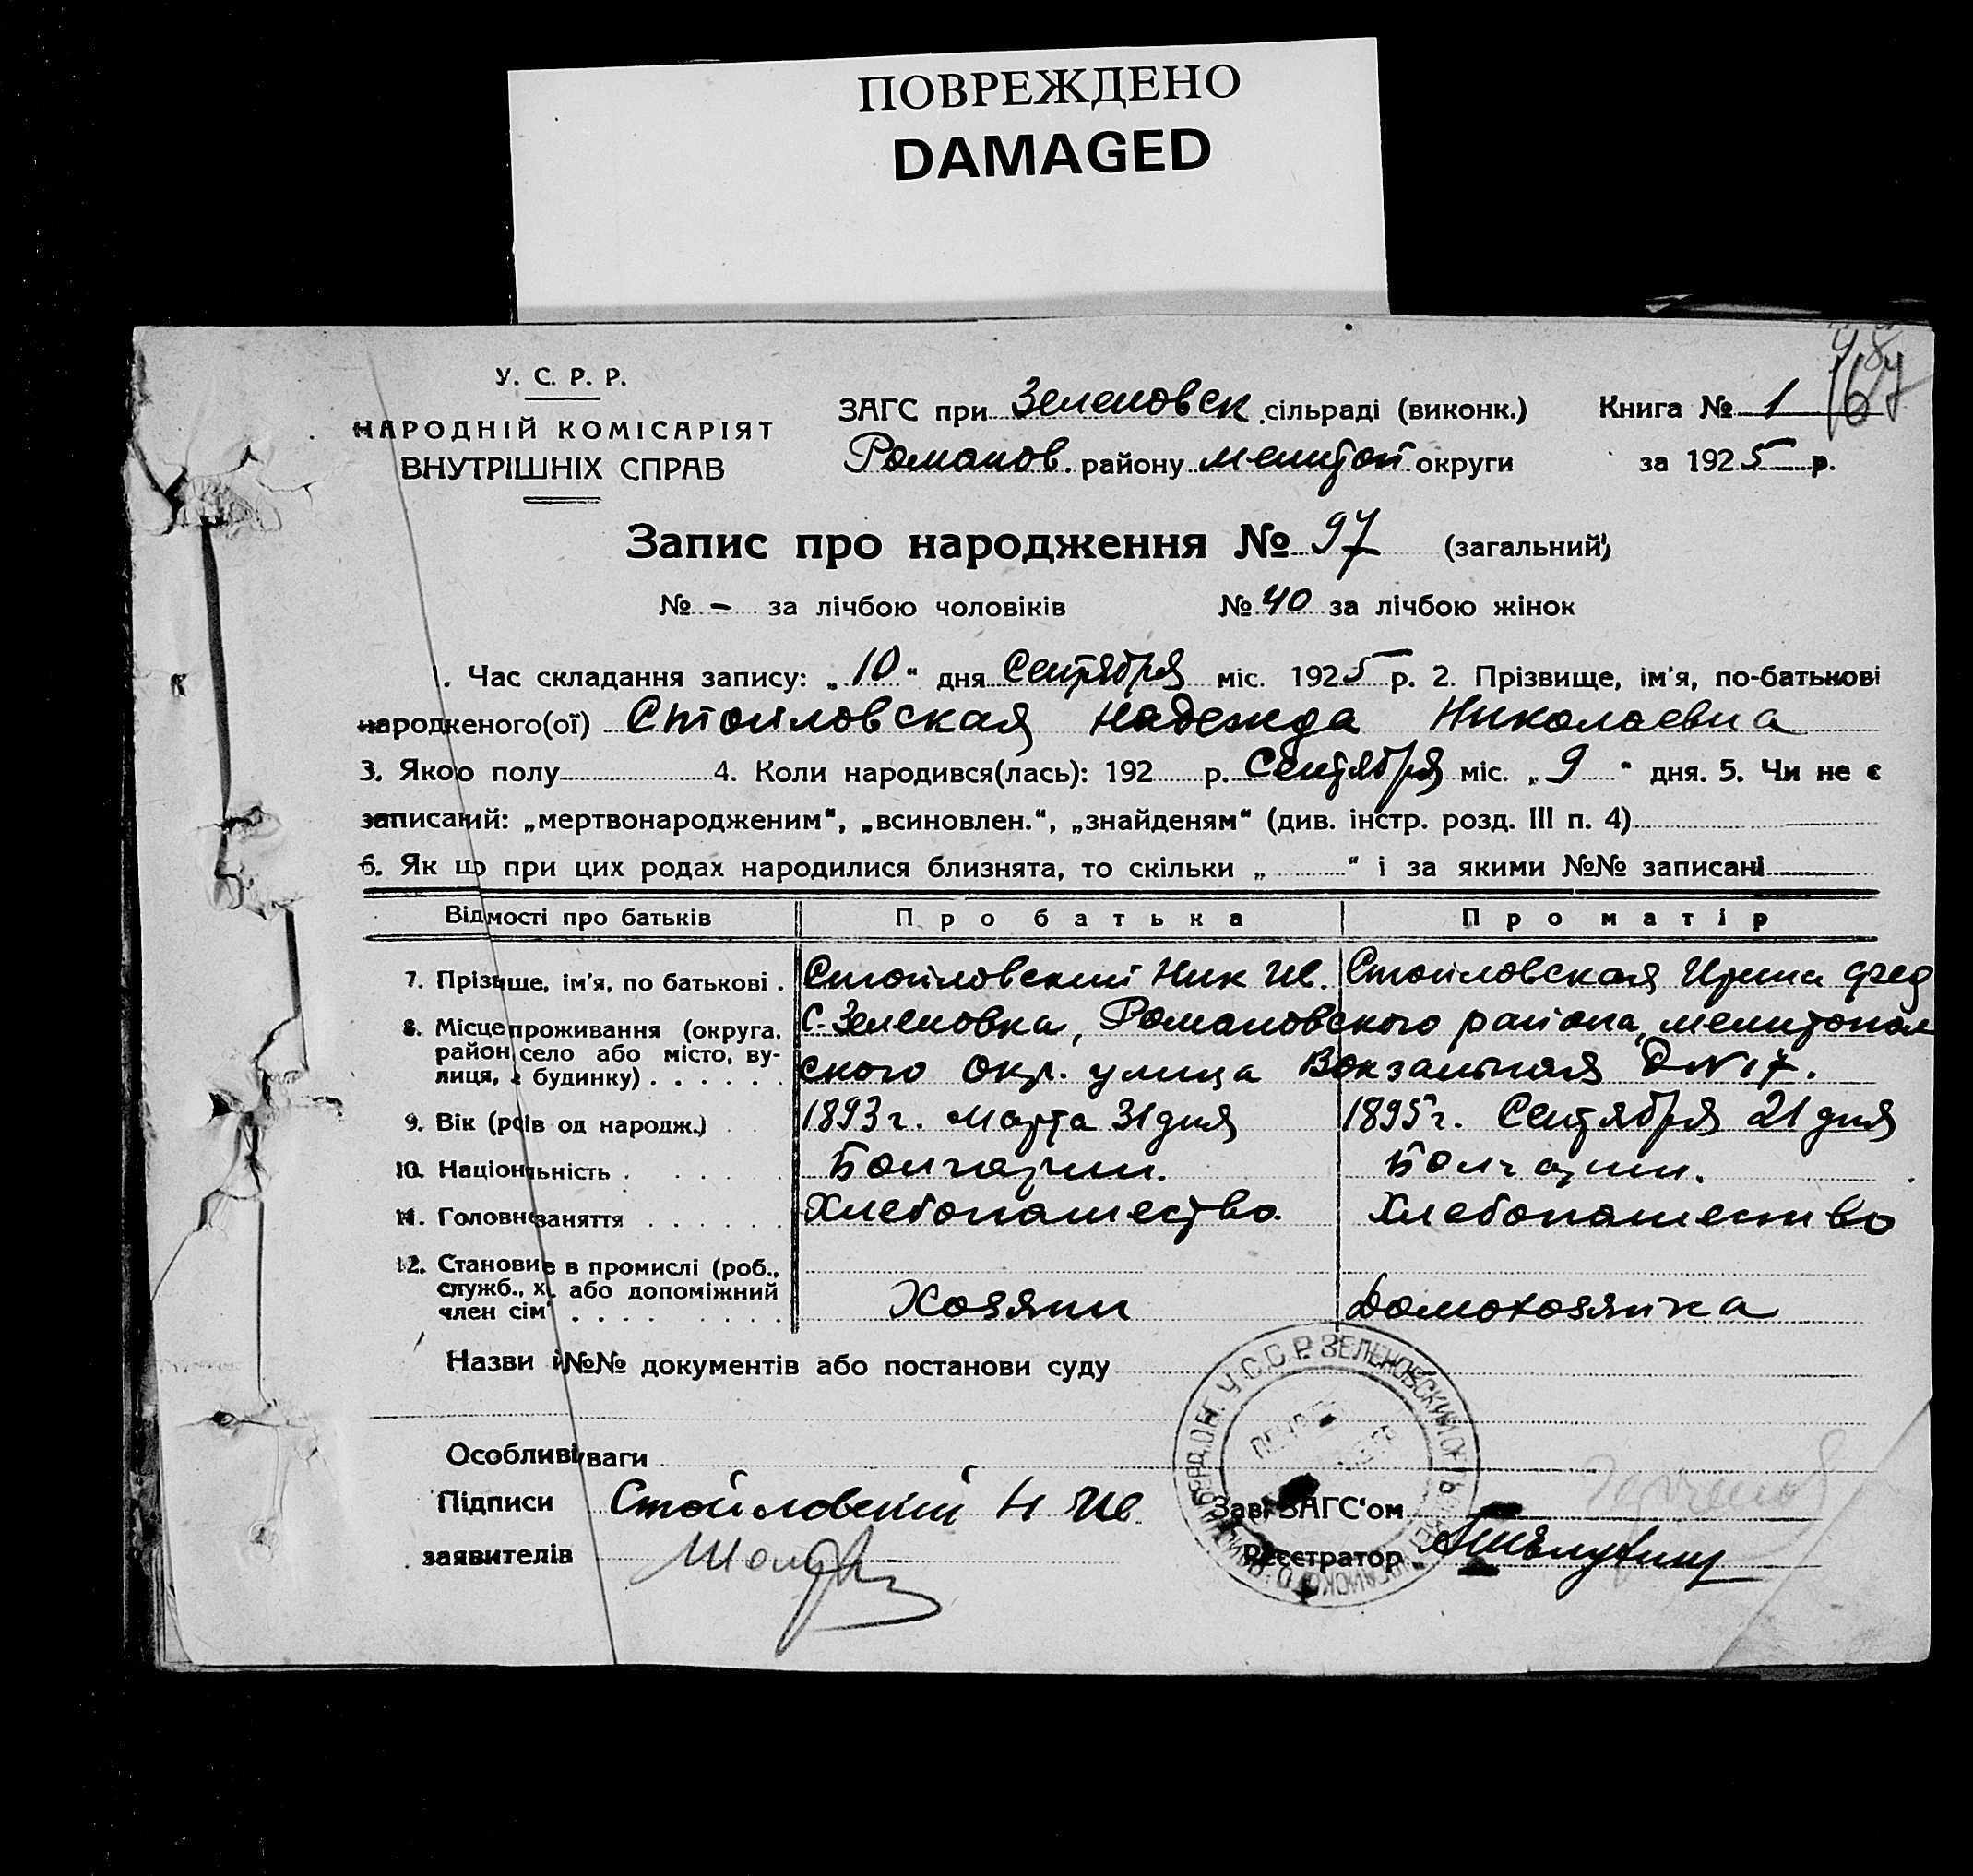 ПОВРЕЖДЕНО
DAMAGED
У. С. Р. Р.
НАРОДНІЙ КОМІСАРІЯТ
ВНУТРІШНІХ СПРАВ
ЗАГС при Зеленовск сільраді (виконк.)
Книга № 1
167
Романов. району Мелитоп округи
за 1925 р.
Запис про народження № 97 (загальний)
№ - за лічбою чоловіків № 40 за лічбою жінок
1. Час складання запису: „10“ дня Сентября міс. 1925 р. 2. Прізвище, ім'я, по-батькові
народженого(ої) Стойловская Надежда Николаевна
3. Якого полу 4. Коли народився(лась): 192 р. Сентября міс. „9“ дня. 5. Чи не є
записаний: „мертвонародженим“, „всиновлен.“, „знайденям“ (див. інстр. розд. III п. 4)
6. Як що при цих родах народилися близнята, то скільки „ “ і за якими №№ записані
Відмості про батьків Про батька Про матір
7. Прізвище, ім'я, по батькові . Стойловский Ник Ив. Стойловская Ирина Фед
8. Місце проживання (округа, район, село або місто, вулиця, № будинку) . . . . . . С. Зеленовка, Романовского района, Мелитополь
ского Окр. улица Вокзальная Д № 17.
9. Вік (років од народж.) 1893 г. Марта 31 дня 1895 г. Сентября 21 дня
10. Національність . Болгарин. Болгарин.
11. Головне заняття Хлебопашество. Хлебопашество
12. Становище в промислі (роб., служб., х. або допоміжний член сім' Хозяин Домохозяйка
Назви і №№ документів або постанови суду
Особливі уваги
Підписи Стойловский Н Ив
Зав. ЗАГС'ом
заявителів
Реєстратор
У.С.С.Р. ЗЕЛЕНОВСКИЙ